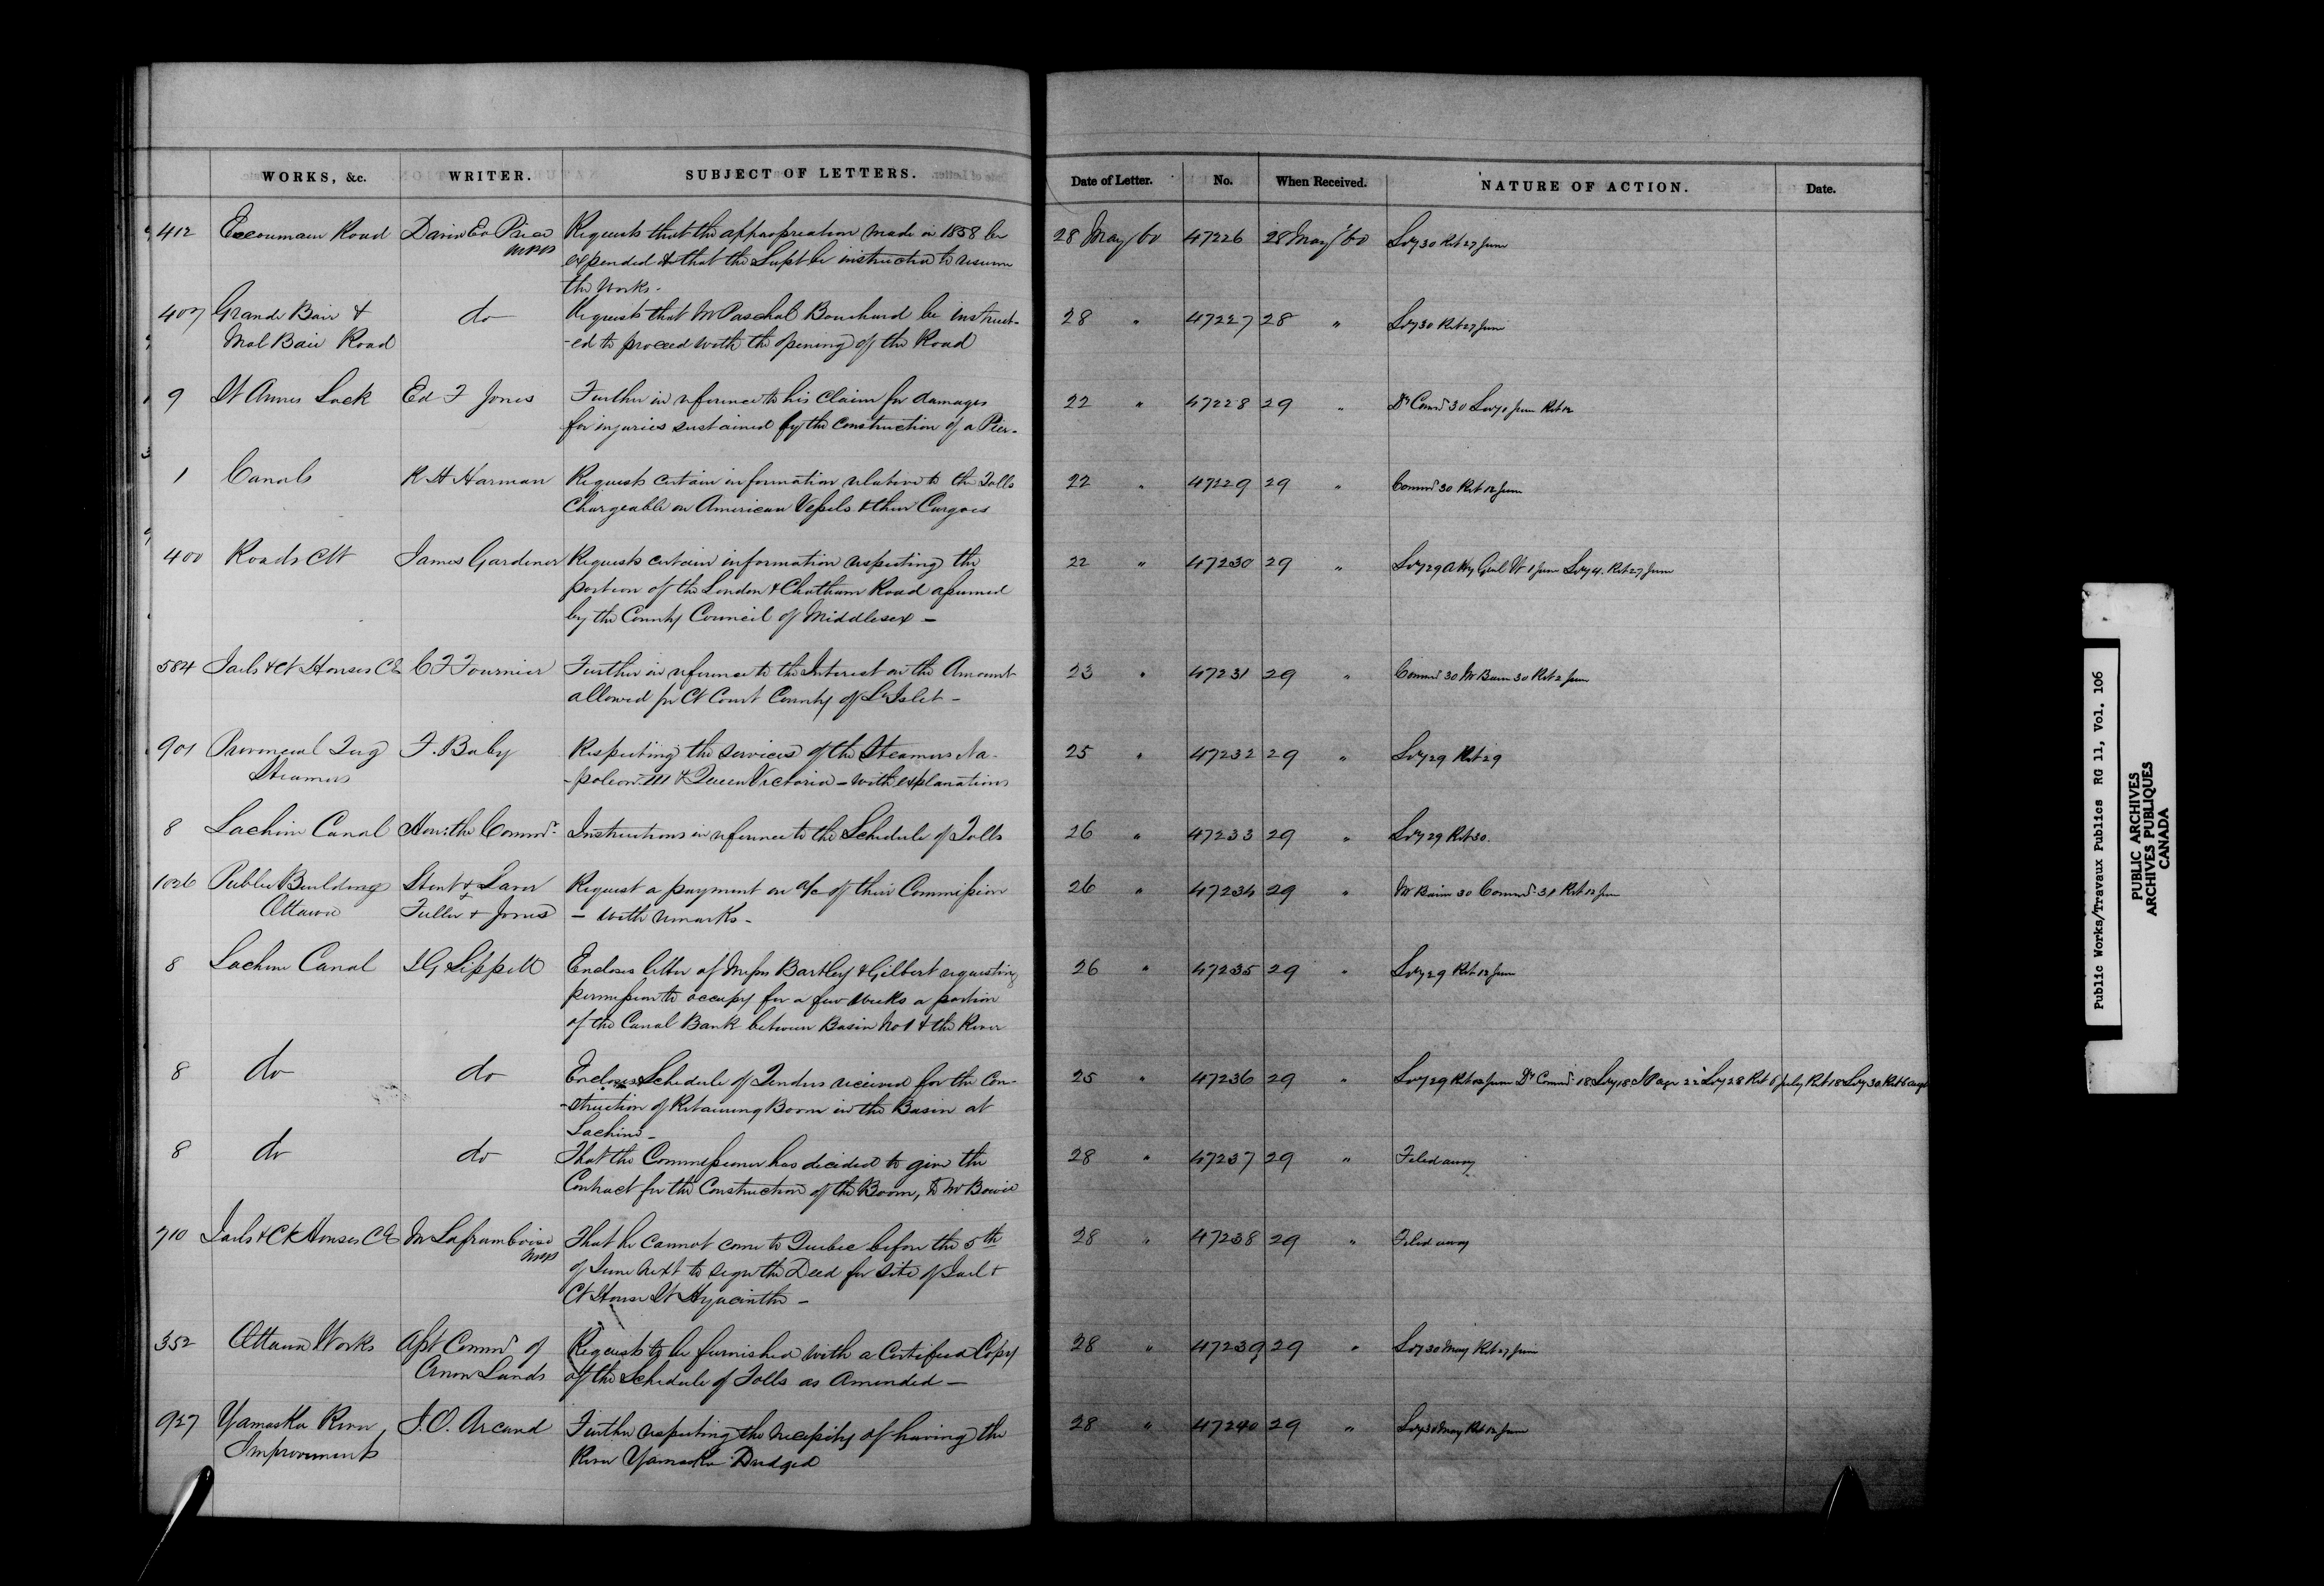 WORKS, &c. WRITER. SUBJECT OF LETTERS. Date of Letter. No. When Received. NATURE OF ACTION. Date.
412 Escoumain Road David Ed Price Requests that the appropriation made in 1858 be 28 May/60 47226 28 May/60 Svy 30 Ret 27 June
MPP expended & that the Supt be instructed to resume
the works.
407 Grande Baie & do Requests that Mr Paschal Bouchard be instruct- 28 " 47227 28 " Svy 30 Ret 27 June
Mal Baie Road -ed to proceed with the opening of the Road
9 St Annes Lock Ed F Jones Further in reference to his claim for damages 22 " 47228 29 " Dy Comr 30 Svy 1 June Ret 12
for injuries sustained by the construction of a Pier.
1 Canals R H Harman Requests certain information relative to the Tolls 22 " 47229 29 " Commr 30 Ret 12 June
Chargeable on American Vessels & their Cargoes
400 Roads CW James Gardener Requests certain information respecting the 22 " 47230 29 " Svy 29 Atty Genl W 1 June Svy 4. Ret 27 June
portion of the London & Chatham Road assumed
by the County Council of Middlesex –
584 Jails & Ct Houses CE C F Fournier Further in reference to the Interest on the Amount 23 " 47231 29 " Commr 30 Mr Bain 30 Ret 2 June
allowed for Ct Court County of L'Islet –
901 Provincial Tug F. Baby Respecting the services of the Steamers Na- 25 " 47232 29 " Svy 29 Ret 29
Steamers -poleon III & Queen Victoria – with explanations
8 Lachine Canal Hon: the Commr. Instructions in reference to the Schedule of Tolls 26 " 47233 29 " Svy 29 Ret 30.
1026 Public Buildings Stent & Laver Request a payment on a/c of their Commission 26 " 47234 29 " Mr Bain 30 Commr. 31 Ret 12 June
Ottawa Fuller & Jones – with remarks –
8 Lachine Canal J G Sippell Encloses letter of Messrs Bartley & Gilbert requesting 26 " 47235 29 " Svy 29 Ret 12 June
permission to occupy for a few weeks a portion
of the Canal Bank between Basin No 1 & the River
8 do do Encloses Schedule of Tenders received for the Con- 25 " 47236 29 " Svy 29 Ret 12 June Dy Commr 18 Svy 18 J Page 22 Svy 28 Ret 6 July Ret 18 Svy 30 Ret 6 augt
-struction of Retaining Boom in the Basin at
Lachine –
8 do do That the Commissioner has decided to give the 28 " 47237 29 " Filed away
Contract for the Construction of the Boom, to Mr Bowie
710 Jails & Ct Houses CE M Laframboise That he cannot come to Quebec before the 5th 28 " 47238 29 " Filed away
MPP of June next to sign the Deed for site of Jail &
Ct House St Hyacinthe –
352 Ottawa Works Asst Commr of Requests to be furnished with a Certified Copy 28 " 47239 29 " Svy 30 May Ret 27 June
Crown Lands of the Schedule of Tolls as Amended –
927 Yamaska River J. O. Arcand Further respecting the necessity of having the 28 " 47240 29 " Svy 30 May Ret 12 June
Improvements River Yamaska Dredged
Public Works/Travaux Publics RG 11, Vol. 106
PUBLIC ARCHIVES
ARCHIVES PUBLIQUES
CANADA